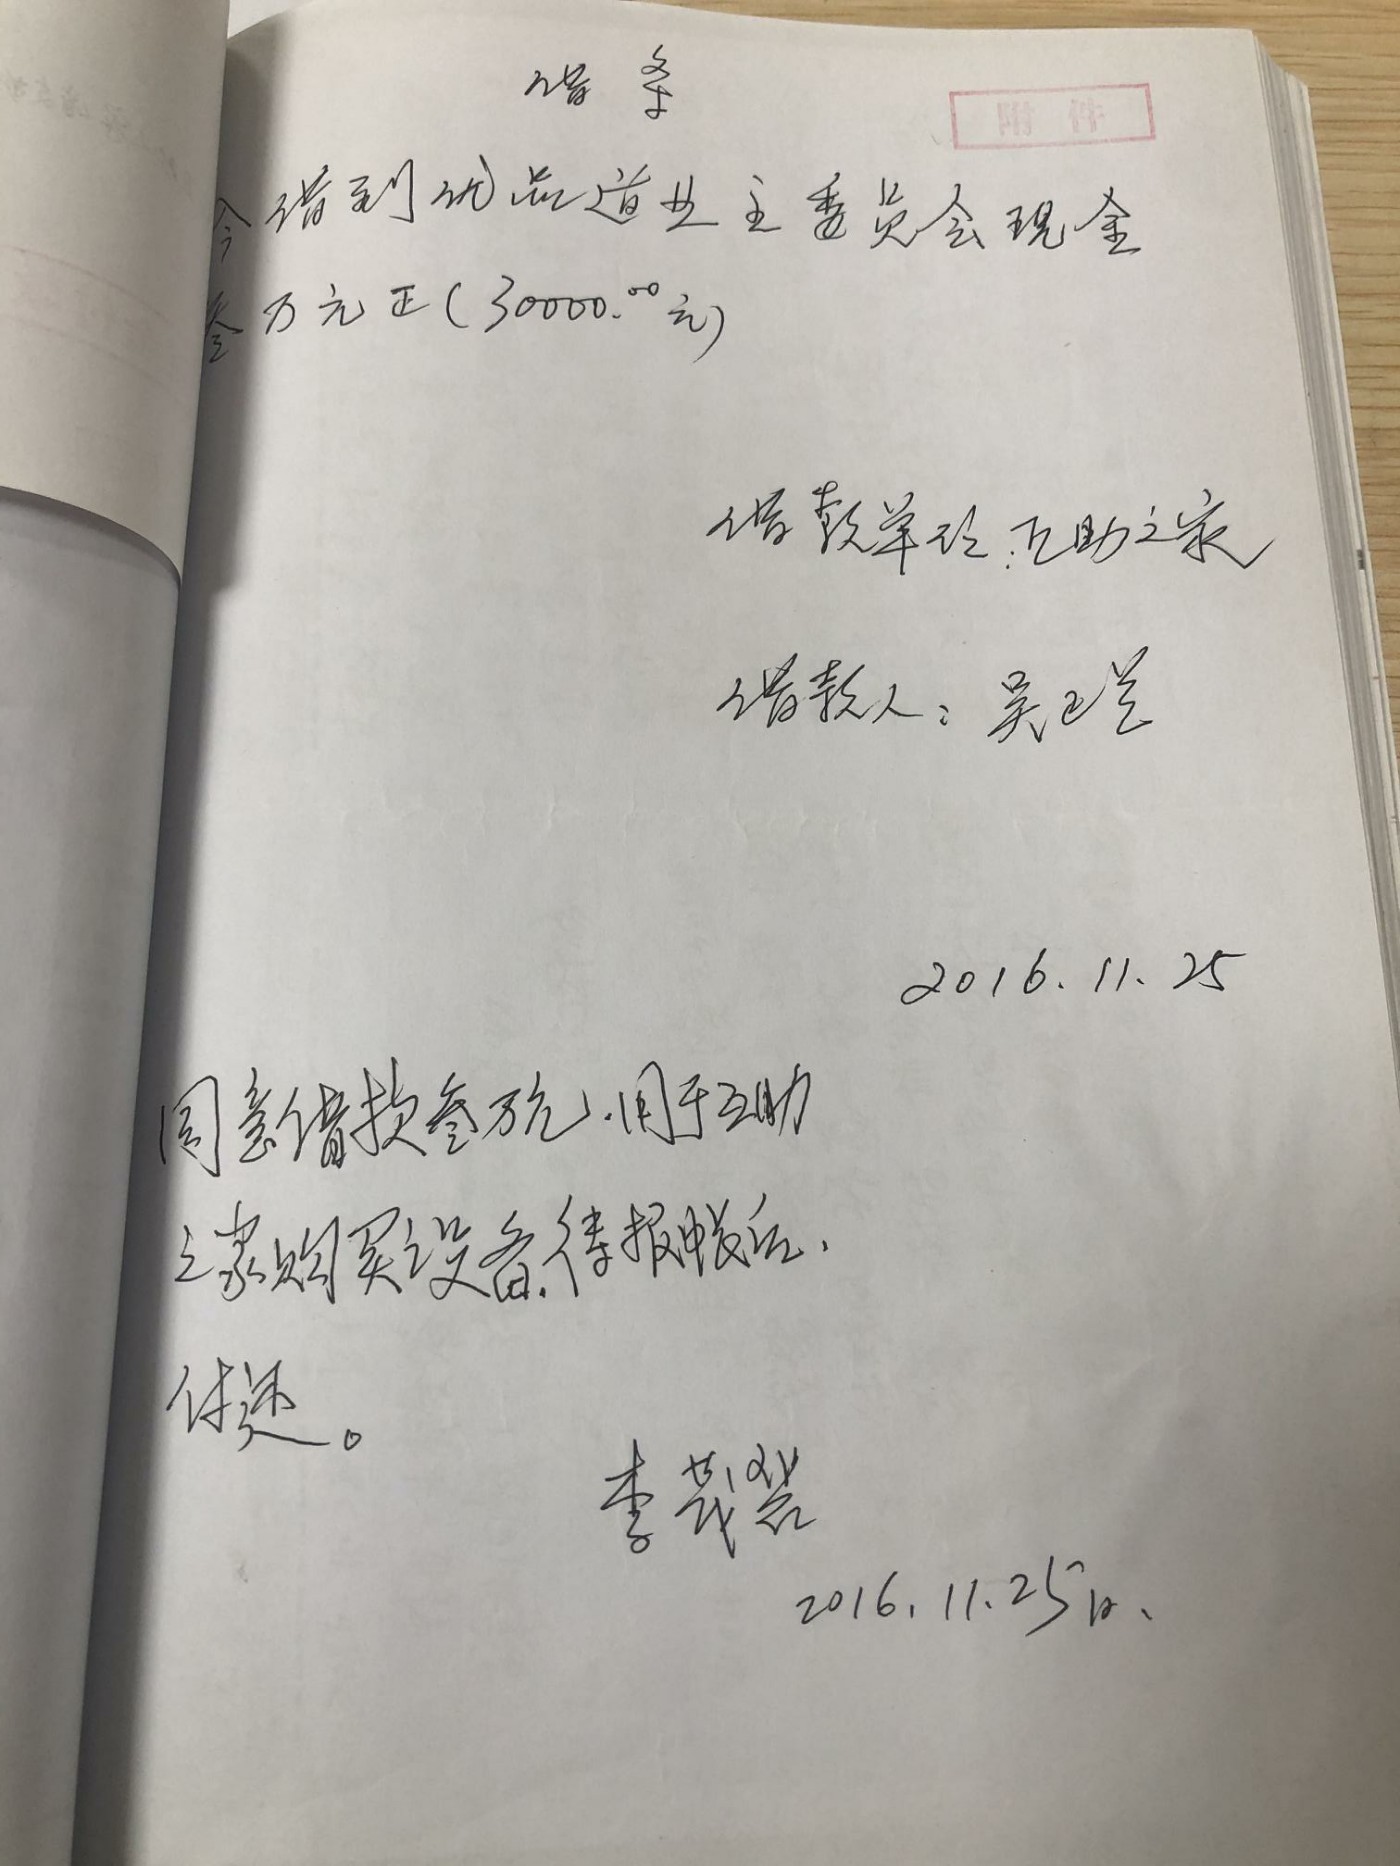 借条
附件
今借到优品道业主委员会现金
叁万元正(30000.00元)
借款单位:互助之家
借款人:吴正兰
2016.11.25
同意借款叁万元.用于互助
之家购买设备.待报帐后.
付还。
李茂
2016.11.25日.